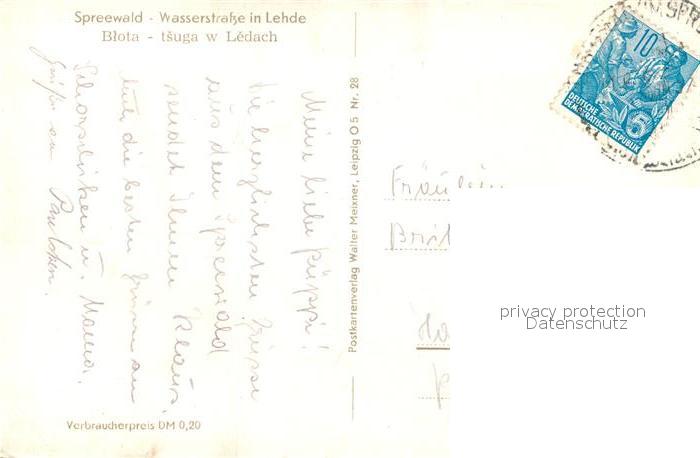 Spreewald - Wasserstraße in Lehde
Błota - tšuga w Lědach
Meine liebe Püppi!
Die herzlichsten Grüsse
aus dem Spreewald
sendet Ihnen Klaus.
auch die besten Grüsse an
u. Mama.
Grüße an
Verbraucherpreis DM 0,20
Postkartenverlag Walter Meixner, Leipzig O 5 Nr. 28
10
5
DEUTSCHE
DEMOKRATISCHE REPUBLIK
Fräulein
privacy protection
Datenschutz